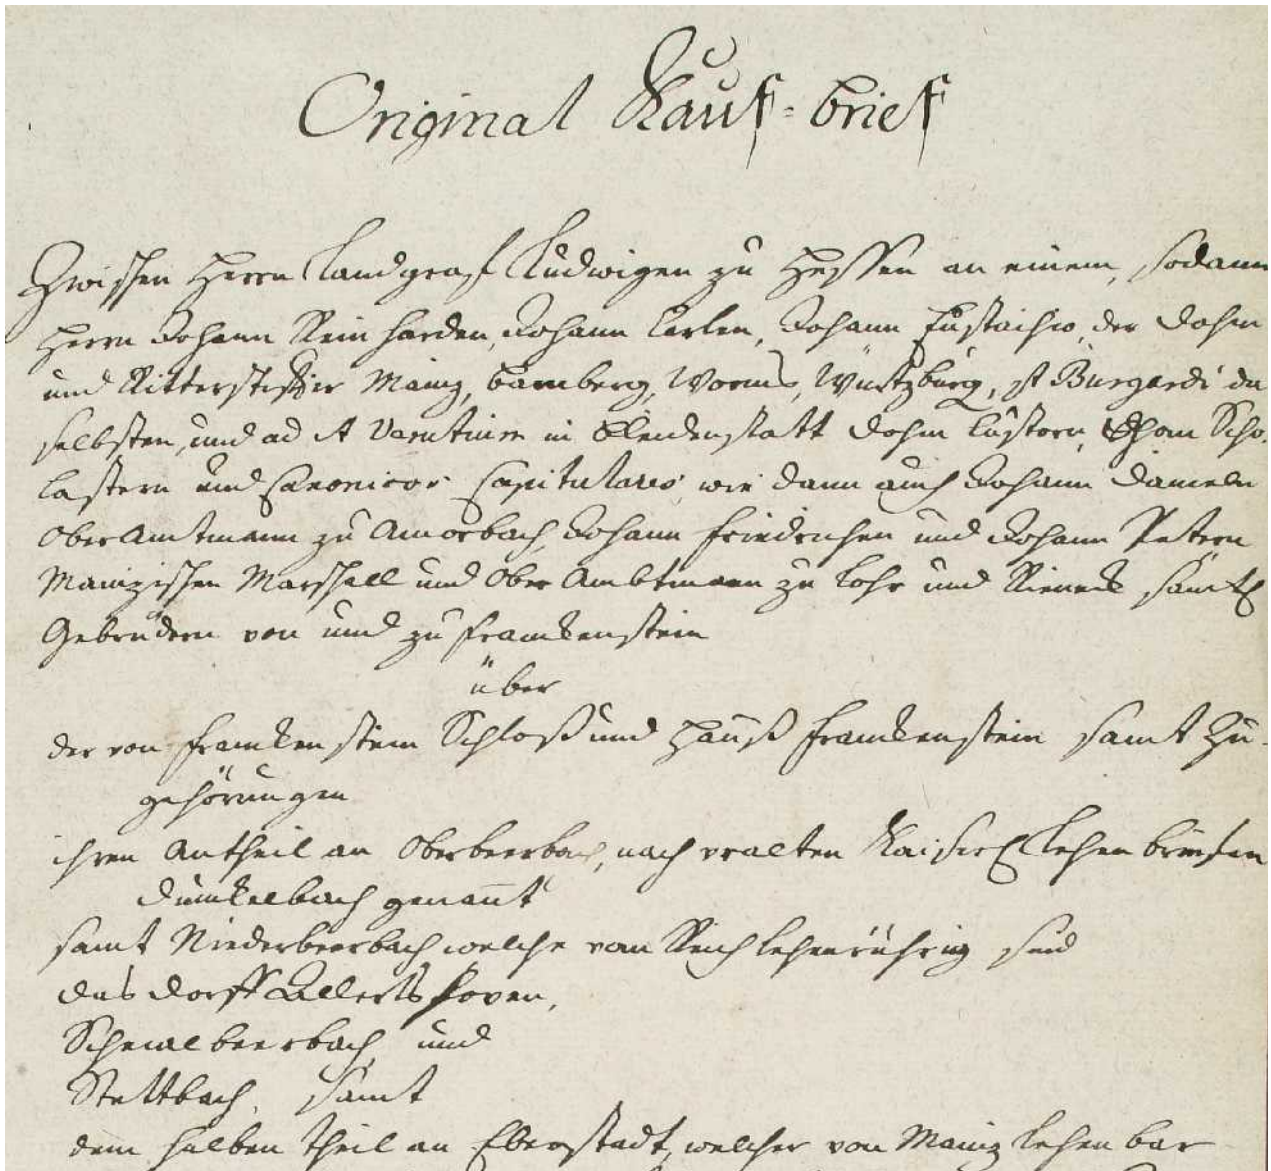 Original Kauf-brief
Zwischen Herrn Landgraf Ludwigen zu Hessen an einem, sodann
Herrn Johann Reinharden, Johann Carlen, Johann Eustachio, der Dohm
und Ritterstiffter Mainz, Bamberg, Worms, Würtzburg, st Burgardi da
selbsten, und ad st in Bleidenstatt Dohm Custorn, Dhom Scho-
lastern und Canonicos Capitulares, wie dann auch Johann Danieln
Ober Amtmann zu Amorbach, Johann Friedrichen und Johann Petern
Mainzischen Marschall und Ober Ambtmann zu Lohr und Rieneck sämtl
Gebrüdern von und zu Franckenstein
über
der von Franckenstein Schloß und Hauß Franckenstein samt Zu-
gehörungen
ihren Antheil an Oberbeerbach, nach uralten Kaiserl Lehen briefen
Dunckelbach genannt
samt Niederbeerbach welche vom Reich lehenrührig sind
das Dorff Allertshoven,
Schmalbeerbach, und
Stettbach, samt
dem halben Theil an Eberstadt, welcher von Mainz lehenbar